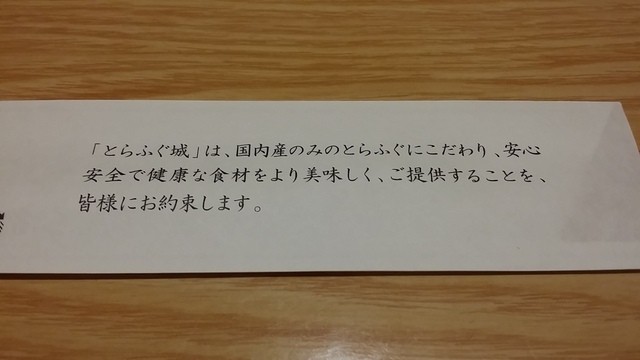 「とらふぐ城」は、国内産のみのとらふぐにこだわり、安心
安全で健康な食材をより美味しく、ご提供することを、
皆様にお約束します。